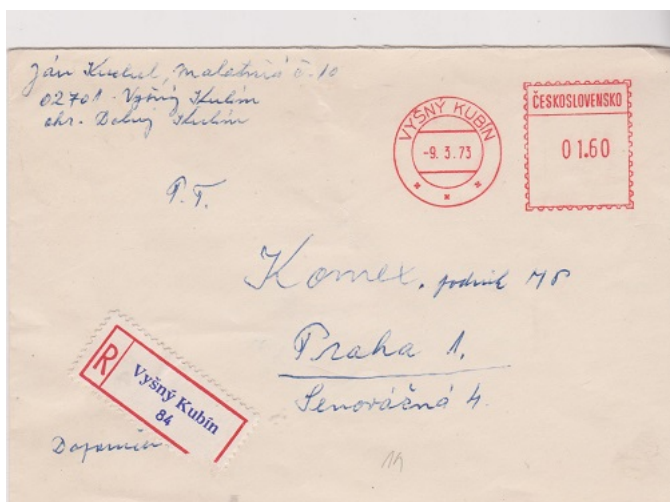 Ján Kuchel, Malatiná č. 10
02701 - Vyšný Kubín
okr. Dolný Kubín
VYŠNÝ KUBÍN
-9. 3. 73
ČESKOSLOVENSKO
01.60
P. T.
Komex, podnik MP
Praha 1.
Senovážná 4.
R
Vyšný Kubín
84
19